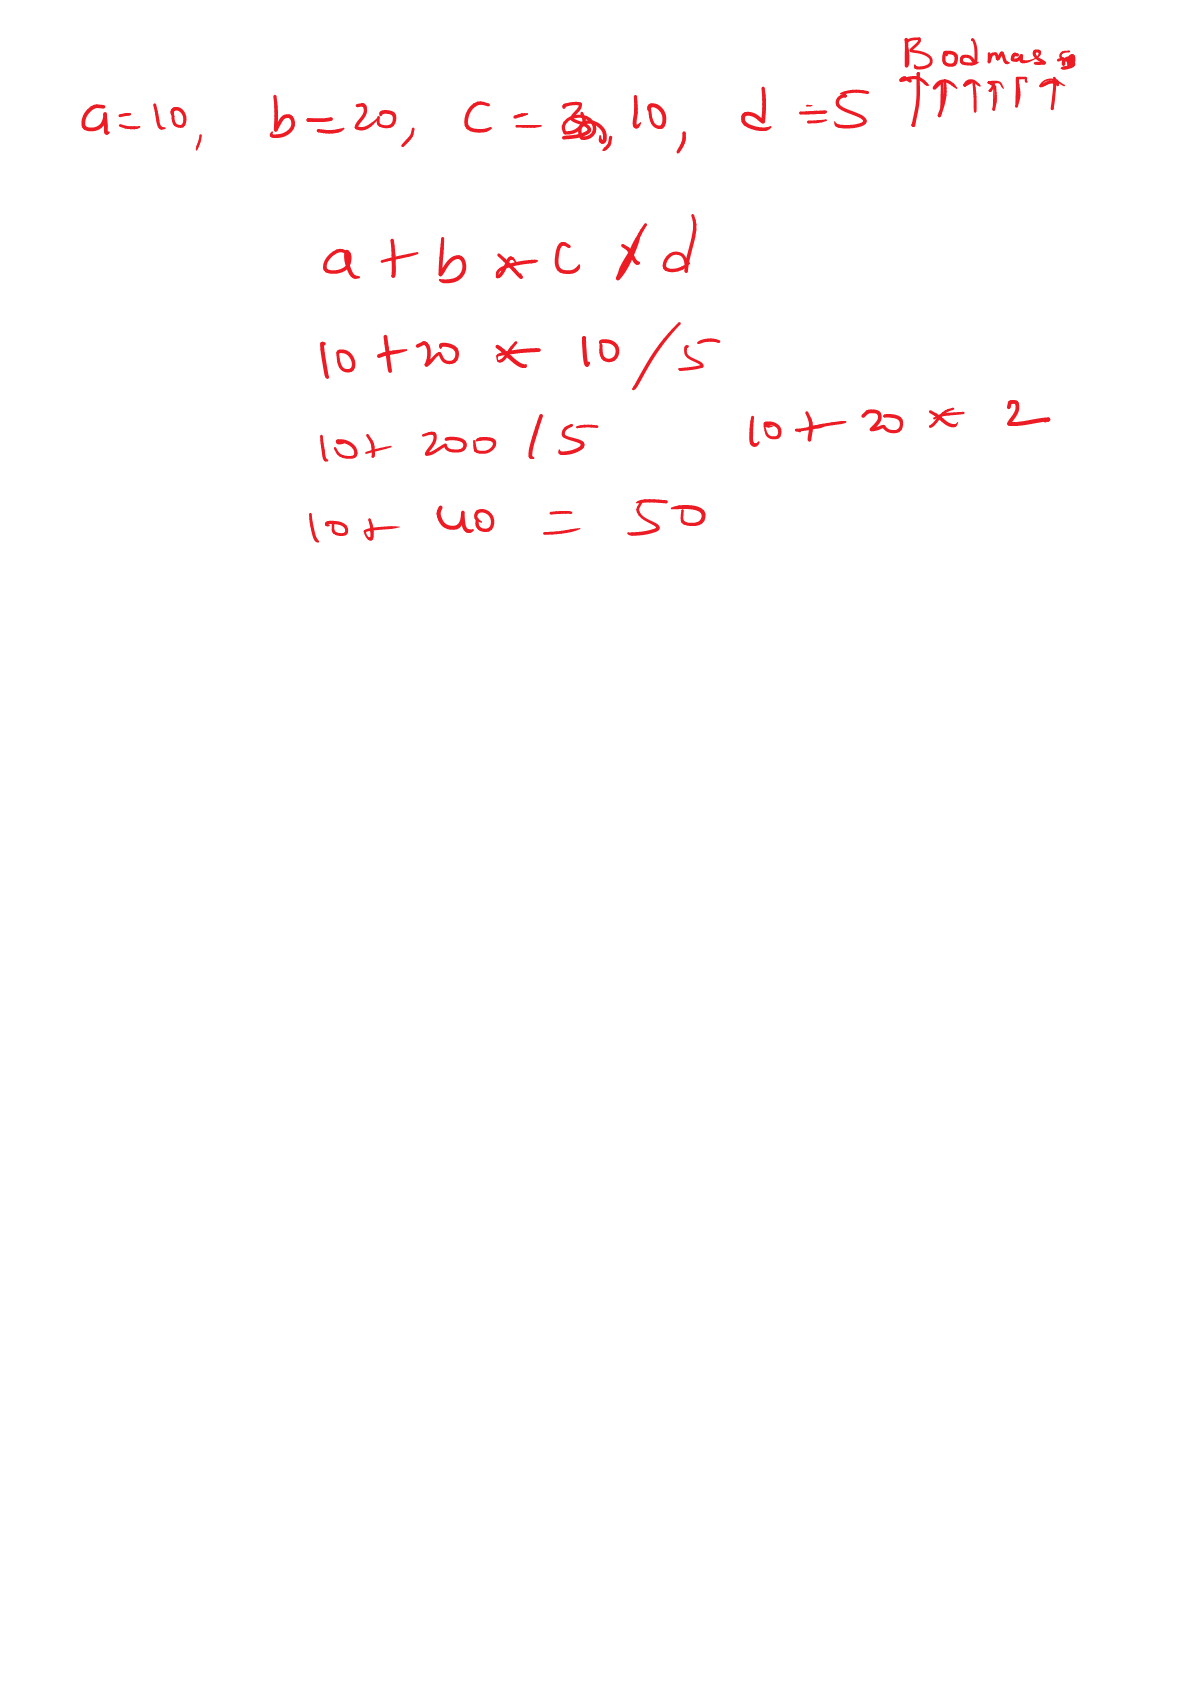 Bodmas
a=10, b=20, c= 10, d=5
a+b*c/d
10+20*10/5
10+200/5 10+20*2
10+40=50